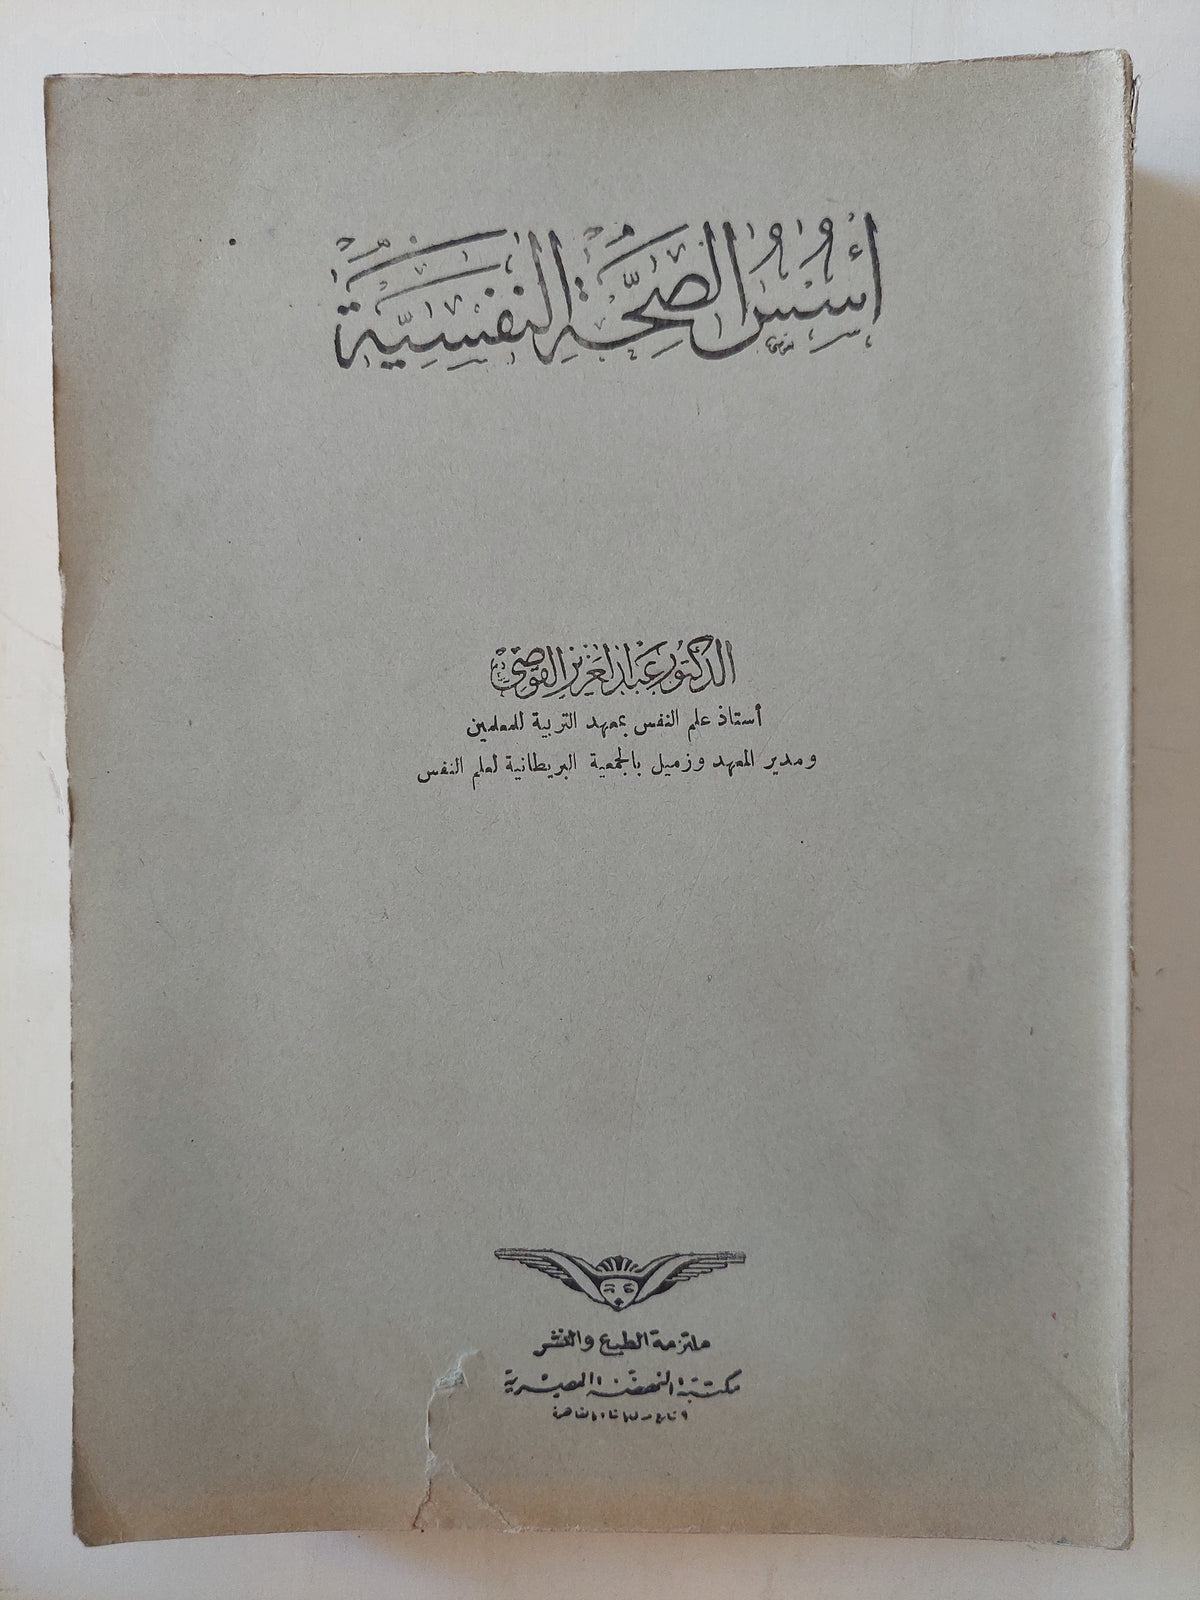 أُسُسُ الصِّحَّةِ النَّفْسِيَّةِ
الدكتور عبد العزيز القوصي
أستاذ علم النفس بمعهد التربية للمعلمين
ومدير المعهد وزميل بالجمعية البريطانية لعلم النفس
ملتزمة الطبع والنشر
مكتبة النهضة المصرية
٩ شارع عدلى باشا بالقاهرة